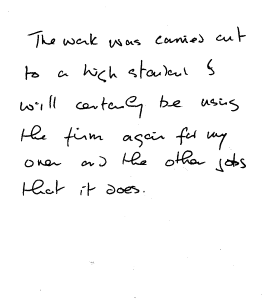 The work was carried out
to a high standard &
will certainly be using
the firm again for my
own and the other jobs
that it does.